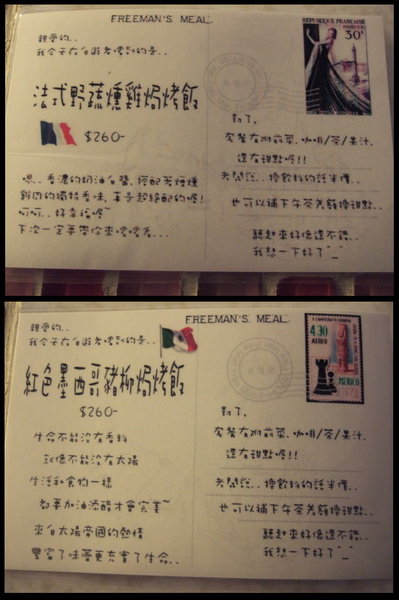 FREEMAN'S MEAL.
親愛的..
我今天在自遊者嚐到的是..
法式野蔬燻雞焗烤飯
$260-
嗯..香濃的奶油白醬,搭配著煙燻
雞肉的獨特香味,真是超絕配的喔!
呵呵..好幸福喔~
下次一定要帶你來嚐嚐.
REPUBLIQUE FRANÇAISE
POSTES
30f
對了,
套餐有附前菜.咖啡/茶/果汁.
還有甜點喔!!
老闆說..換飲料的話半價..
也可以補下午茶差額換甜點..
聽起來好像還不錯..
我想一下好了^_^
FREEMAN'S MEAL.
親愛的..
我今天在自遊者嚐到的是..
紅色墨西哥豬柳焗烤飯
$260-
生命不能沒有香料
就像不能沒有太陽
生活和食物一樣
都要加油添醋才會完美~
來自太陽帝國的熱情
豐富了味蕾更充實了生命..
4.30
AEREO
MEXICO
對了,
套餐有附前菜.咖啡/茶/果汁.
還有甜點喔!!
老闆說..換飲料的話半價..
也可以補下午茶差額換甜點..
聽起來好像還不錯..
我想一下好了^_^